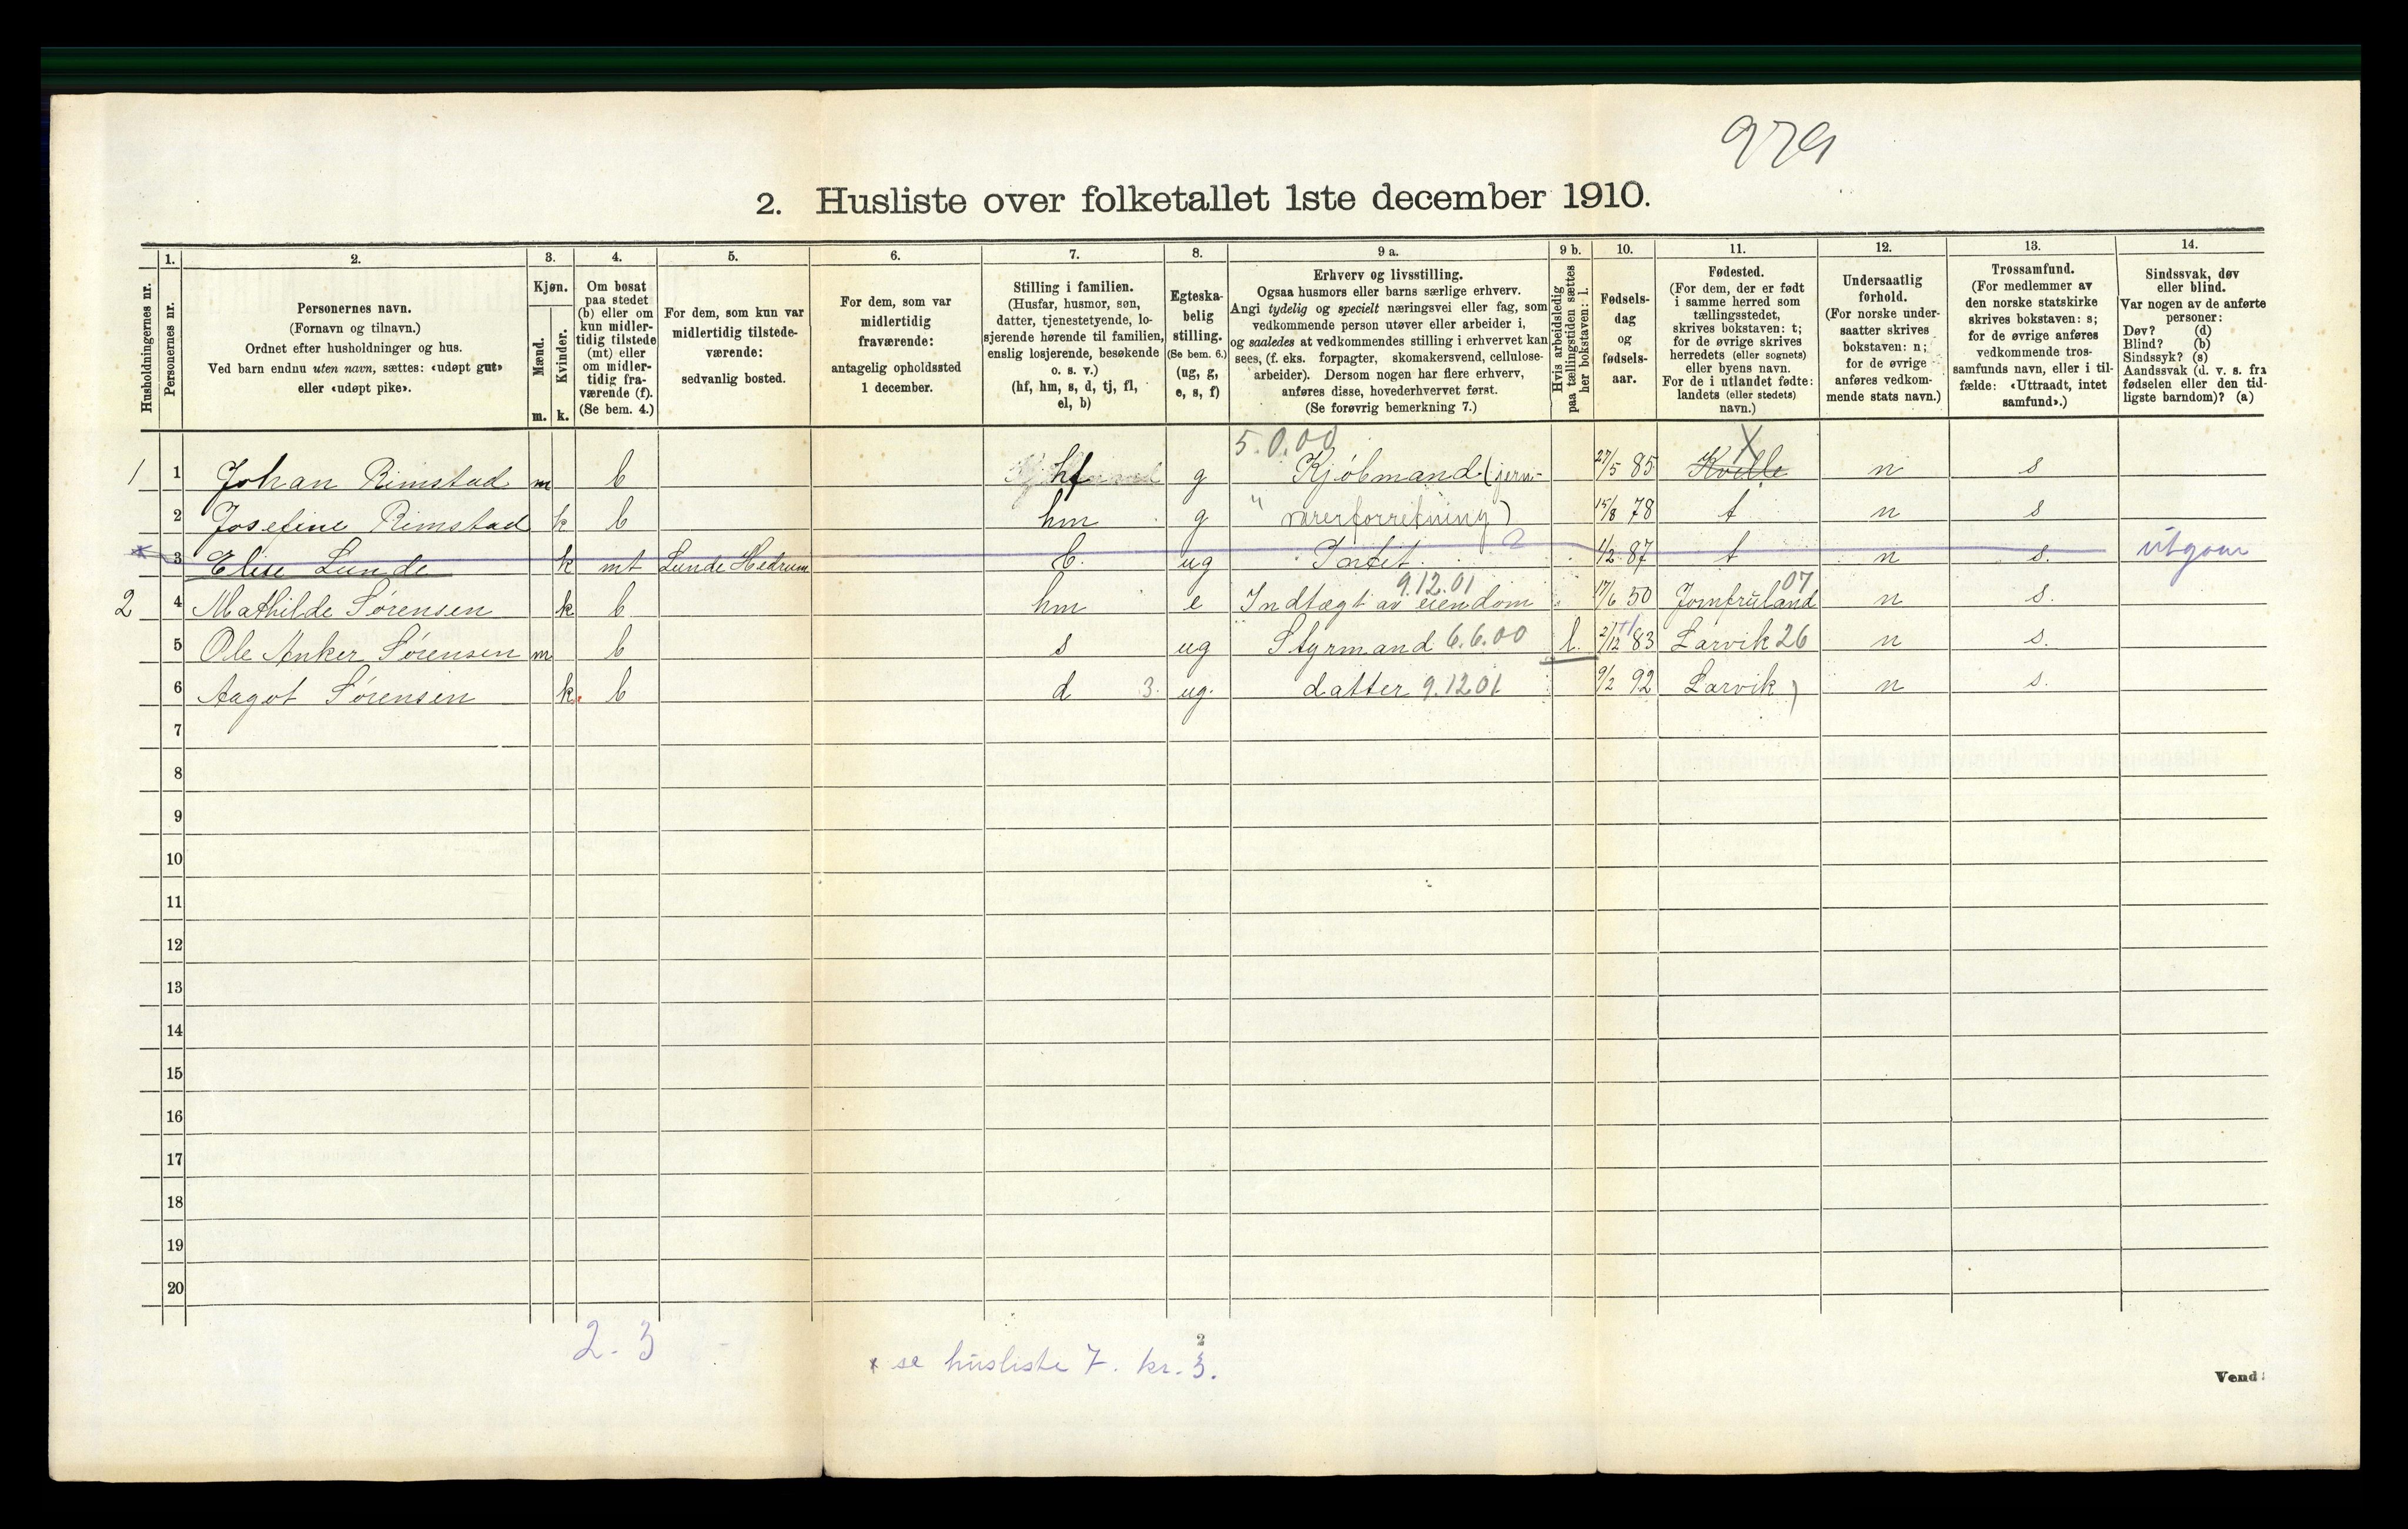 979
2. Husliste over folketallet 1ste december 1910.
Husholdningernes nr.
1.
Personernes nr.
2.
Personernes navn.
(Fornavn og tilnavn.)
Ordnet efter husholdninger og hus.
Ved barn endnu uten navn, sættes: «udøpt gut»
eller «udøpt pike».
3.
Kjøn.
Mænd.
m.
Kvinder.
k.
4.
Om bosat
paa stedet
(b) eller om
kun midler-
tidig tilstede
(mt) eller
om midler-
tidig fra-
værende (f).
(Se bem. 4.)
5.
For dem, som kun var
midlertidig tilstede-
værende:
sedvanlig bosted.
6.
For dem, som var
midlertidig
fraværende:
antagelig opholdssted
1 december.
7.
Stilling i familien.
(Husfar, husmor, søn,
datter, tjenestetyende, lo-
sjerende hørende til familien,
enslig losjerende, besøkende
o. s. v.)
(hf, hm, s, d, tj, fl,
el, b)
8.
Egteska-
belig
stilling.
(Se bem. 6.)
(ug, g,
e, s, f)
9 a.
Erhverv og livsstilling.
Ogsaa husmors eller barns særlige erhverv.
Angi tydelig og specielt næringsvei eller fag, som
vedkommende person utøver eller arbeider i,
og saaledes at vedkommendes stilling i erhvervet kan
sees, (f. eks. forpagter, skomakersvend, cellulose-
arbeider). Dersom nogen har flere erhverv,
anføres disse, hovederhvervet først.
(Se forøvrig bemerkning 7.)
9 b.
Hvis arbeidsledig
paa tællingstiden sættes
her bokstaven: l.
10.
Fødsels-
dag
og
fødsels-
aar.
11.
Fødested.
(For dem, der er født
i samme herred som
tællingsstedet,
skrives bokstaven: t;
for de øvrige skrives
herredets (eller sognets)
eller byens navn.
For de i utlandet fødte:
landets (eller stedets)
navn.)
12.
Undersaatlig
forhold.
(For norske under-
saatter skrives
bokstaven: n;
for de øvrige
anføres vedkom-
mende stats navn.)
13.
Trossamfund.
(For medlemmer av
den norske statskirke
skrives bokstaven: s;
for de øvrige anføres
vedkommende tros-
samfunds navn, eller i til-
fælde: «Uttraadt, intet
samfund».)
14.
Sindssvak, døv
eller blind.
Var nogen av de anførte
personer:
Døv? (d)
Blind? (b)
Sindssyk? (s)
Aandssvak (d. v. s. fra
fødselen eller den tid-
ligste barndom)? (a)
5.0.00 X
1 1 Johan Rimstad m b hf g Kjøbmand (jern- 27/5 85 Kvelle n s
2 Josefine Rimstad k b hm g " varerforretning) 15/8 78 t n s
* 3 Elise Lunde k mt Lunde Hedrum b. ug Intet 1/2 87 t n s. utgaar
9.12.01 07
2 4 Mathilde Sørensen k b hm e Indtægt av eiendom 17/6 50 Jomfruland n s.
5 Ole Anker Sørensen m b s ug Styrmand 6.6.00 l. 2/12 83 Larvik 26 n s.
6 Aagot Sørensen k. b d 3. ug. datter 9.12.01 9/2 92 Larvik ) n s.
7
8
9
10
11
12
13
14
15
16
17
18
19
20
2. 3
2
* se husliste 7. kr. 3.
Vend!